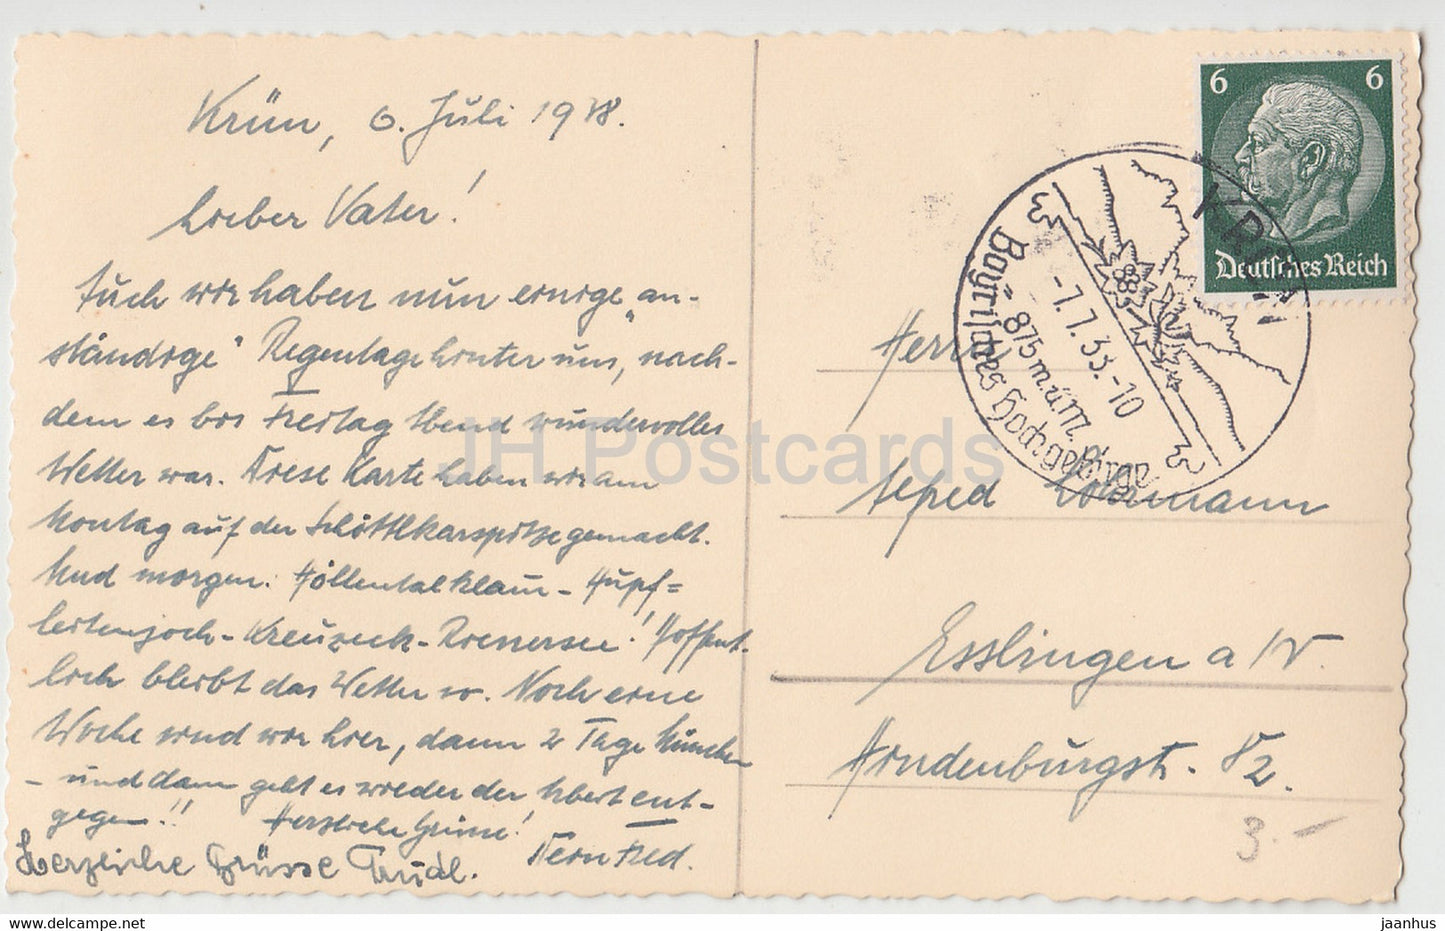 Krün, 6. Juli 1938.
Lieber Vater!
Auch wir haben nun einige „an-
ständige“ Regentage hinter uns, nach-
dem es bis Freitag Abend wundervolles
Wetter war. Diese Karte haben wir am
Montag auf der Schöttlkarspitze gemacht.
Und morgen: Höllentalklam - Hupf=
leitenjoch - Kreuzeck - Riessersee! Hoffent-
lich bleibt das Wetter so. Noch eine
Woche sind wir hier, dann 2 Tage München
- und dann geht es wieder der Arbeit ent-
gegen!! Herzliche Grüsse!
Dein Fred.
Herzliche Grüsse Trudl.
6 6
Deutsches Reich
KRÜN
-7.7.38.-10
875 m ü. M.
Bayrisches Hochgebirge
Herrn
Esslingen a/N.
Hindenburgstr. 82.
3.-
JH Postcards
https://www.delcampe.net
jaanhus